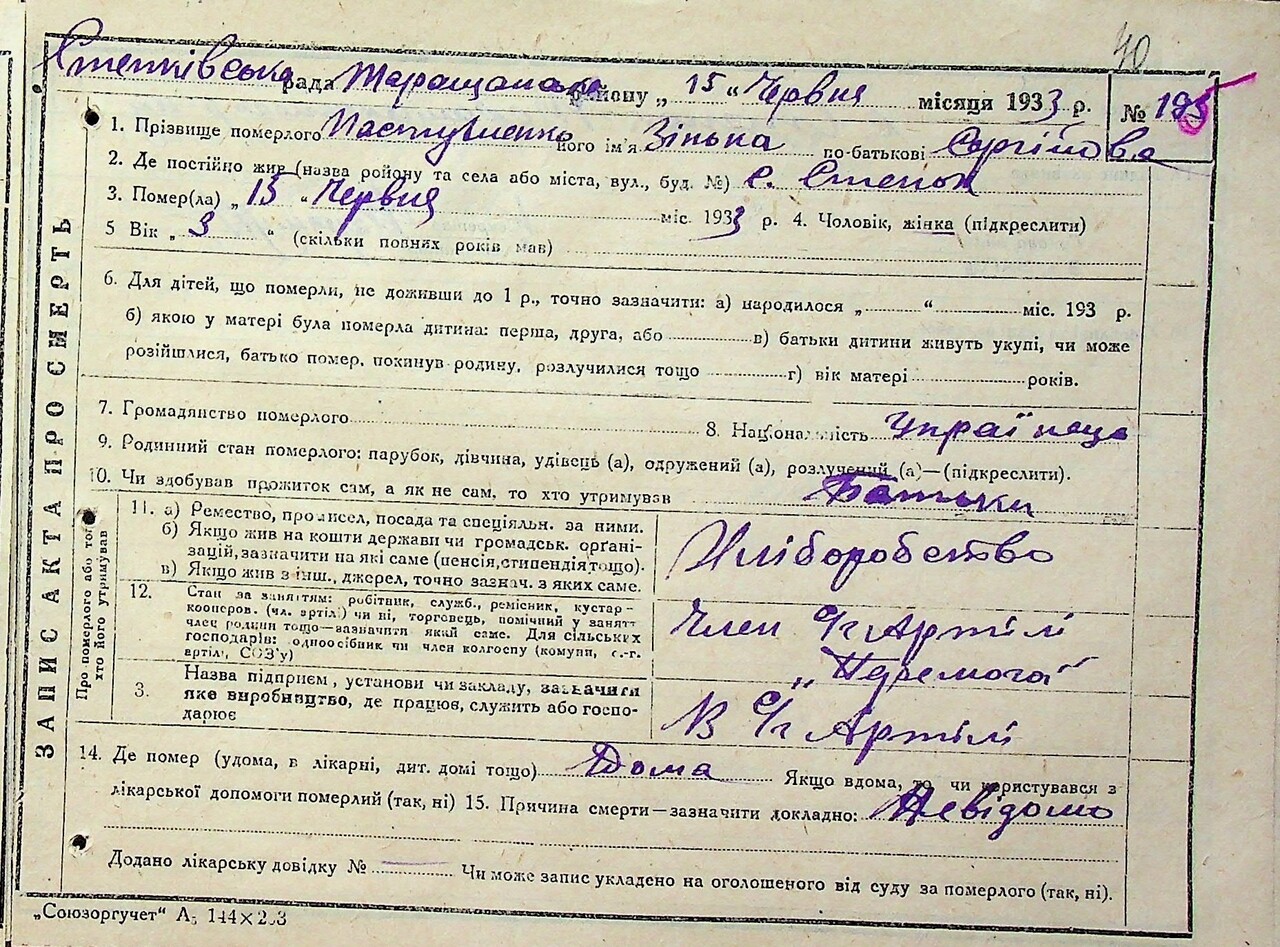 40
Степківська рада Таращанського району „ 15 “ Червня місяця 1933 р. № 195
1. Прізвище померлого його ім'я Зінька по-батькові Сергійова
2. Де постійно жив (назва району та села або міста, вул., буд. №) с. Степок
3. Помер(ла) „ 15 “ Червня міс. 1933 р. 4. Чоловік, жінка (підкреслити)
5 Вік „ 3 “ (скільки повних років мав)
6. Для дітей, що померли, не доживши до 1 р., точно зазначити: а) народилося „ “ міс. 193 р.
б) якою у матері була померла дитина: перша, друга, або в) батьки дитини живуть укупі, чи може
розійшлися, батько помер, покинув родину, розлучилися тощо г) вік матері років.
7. Громадянство померлого 8. Національність Українець
9. Родинний стан померлого: парубок, дівчина, удівець (а), одружений (а), розлучений (а)—(підкреслити).
10. Чи здобував прожиток сам, а як не сам, то хто утримував Батьки
ЗАПИС АКТА ПРО СМЕРТЬ
Про померлого або того,
хто його утримував
11. а) Ремество, промисел, посада та спеціяльн. за ними.
б) Якщо жив на кошти держави чи громадськ. орґані-
зацій, зазначити на які саме (пенсія, стипендія тощо).
в) Якщо жив з інш., джерел, точно зазнач. з яких саме.
Хліборобство
12. Стан за заняттям: робітник, служб., ремісник, кустар-
кооперов. (чл. артілі) чи ні, торговець, помічний у занятт
член родини тощо—зазначити який саме. Для сільських
господарів: одноосібник чи член колгоспу (комуни, с.-г.
артілі, СОЗ'у)
Член с/г Артілі
„Перемога"
3. Назва підприєм, установи чи закладу, зазначити
яке виробництво, де працює, служить або госпо-
дарює
В с/г Артілі
14. Де помер (удома, в лікарні, дит. домі тощо) Дома Якщо вдома, то чи користувався з
лікарської допомоги померлий (так, ні) 15. Причина смерти—зазначити докладно: Невідомо
Додано лікарську довідку № Чи може запис укладено на оголошеного від суду за померлого (так, ні).
„Союзоргучет“ А₅ 144×203